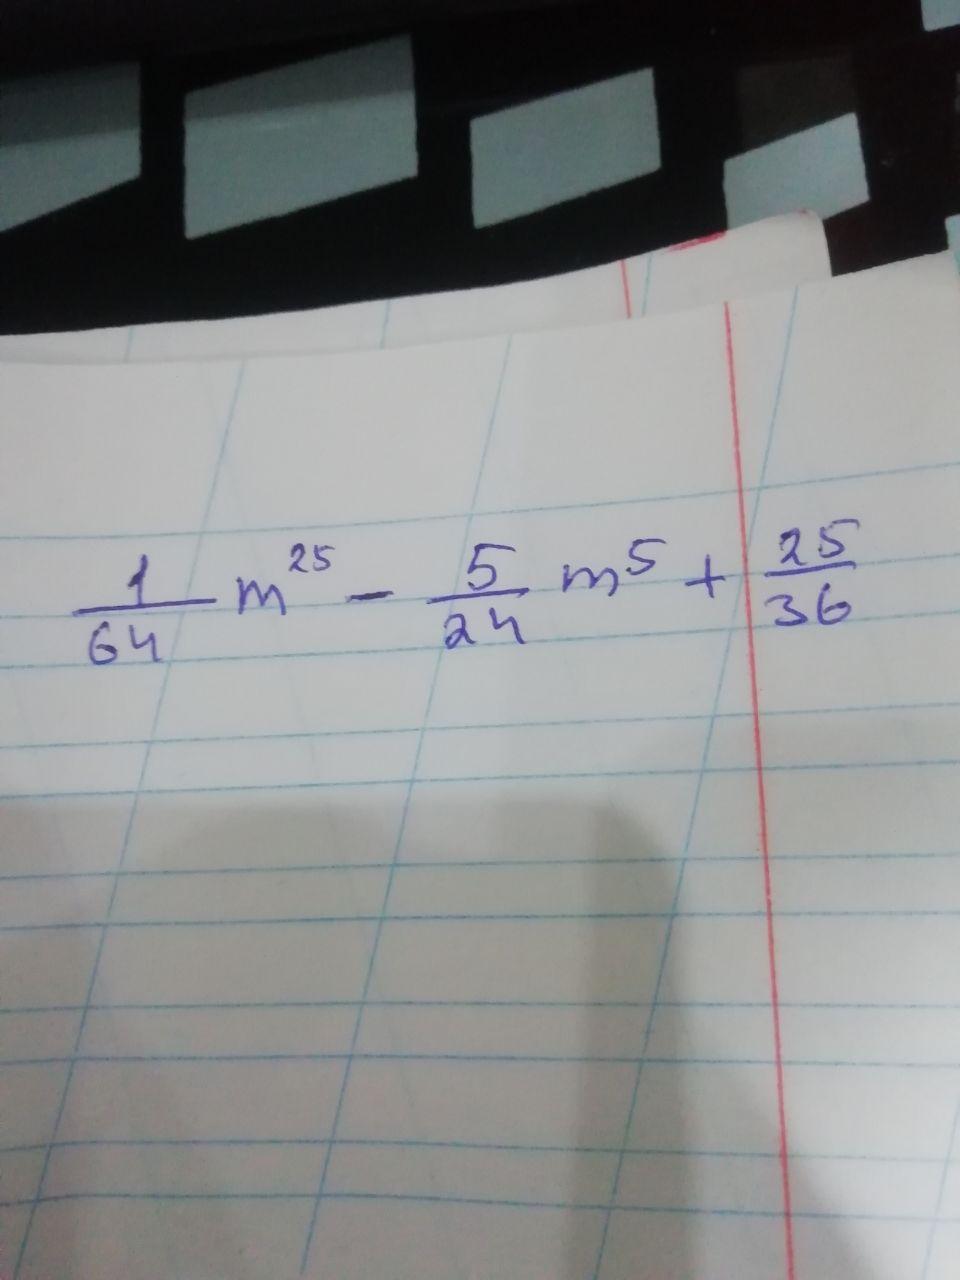 1/64 m^25 - 5/24 m^5 + 25/36